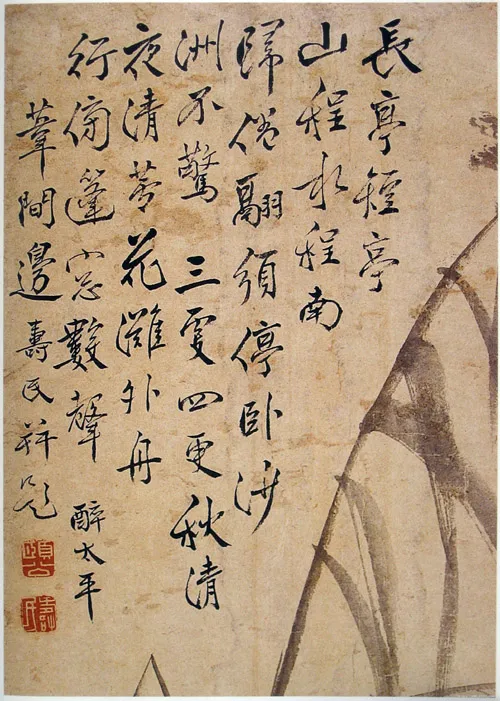 長亭短亭
山程水程南
歸倦翮須停臥汀
洲不驚 三更四更秋清
夜清芦花灘外舟
行傍篷窓數聲
醉太平
葦間邊壽民并題
頤公
壽民